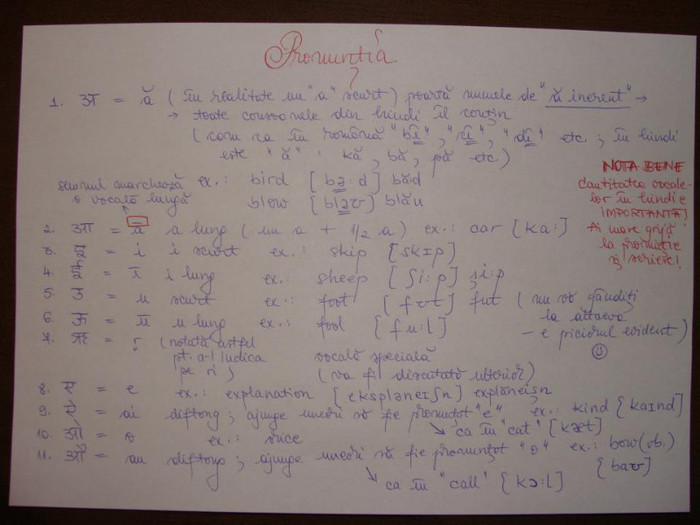 Pronunția
1. अ = ă ( în realitate un "a" scurt) poartă numele de "ă inerent" →
→ toate consoanele din hindi îl conțin
( cam ca în română "bî", "cî", "dî" etc ; în hindi
este "ă" : kă, bă, pă etc.)
semnul marchează ex.: bird [bə:d] băd
o vocală lungă blow [bləʊ] blău
NOTA BENE
cantitatea vocale-
lor în hindi e
IMPORTANTĂ!
Ai mare grijă
la pronunție
și scriere!
2. आ = ā a lung ( un a + 1/2 a) ex.: car [ka:]
3. इ = i i scurt ex.: skip [skɪp]
4. ई = ī i lung ex.: sheep [ʃi:p] și:p
5. उ = u u scurt ex.: foot [fʊt] fut ( nu vă gândiți
la altceva
– e piciorul evident)
6. ऊ = ū u lung ex.: fool [fu:l]
7. ऋ = ṛ (notată astfel
pt. a-l indica vocală specială
pe ri ) ( va fi discutată ulterior)
8. ए = e ex.: explanation [ekspləneɪʃn] explăneișn
9. ऐ = ai diftong ; ajunge uneori să fie pronunțat "e" ex.: kind [kaɪnd]
→ ca în "cat" [kæt]
10. ओ = o ex.: orice
11. औ = au diftong ; ajunge uneori să fie pronunțat "o" ex.: bow (vb.)
[baʊ]
→ ca în "call" [kɔ:l]